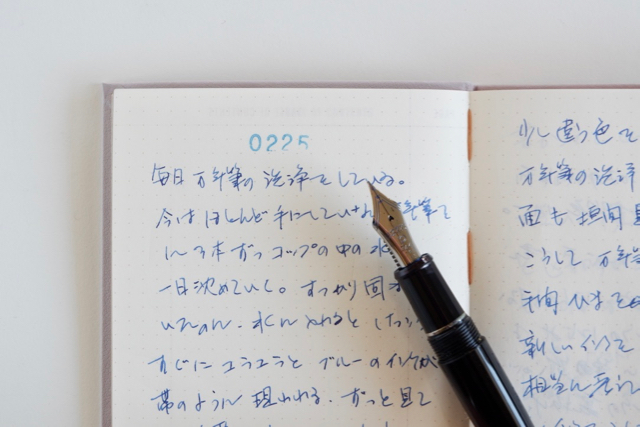 0225
毎日万年筆の洗浄をしている。
今はほとんど手にしていな 万年筆を
に3本ずつコップの中の水
一日沈めていく。すっかり固
いたのん、水に入れると したっ
すぐにユラユラと ブルーのインクが
帯のように現われる。ずっと見て
少し違う色を
万年筆の洗浄
面も垣間見
こうして万年筆
手間ひまをか
新しいインクを
相当に